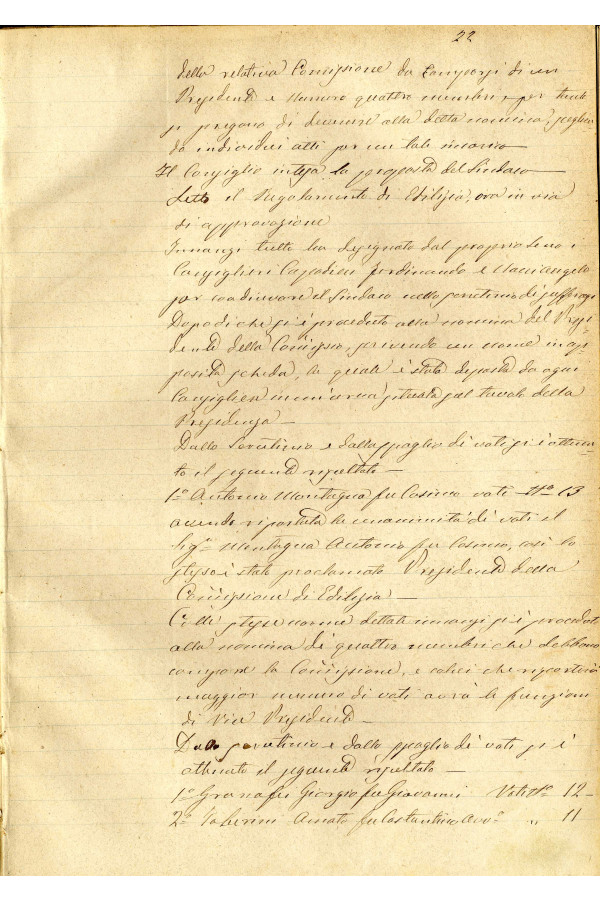 22
della relativa Commissione da comporsi di un
Presidente e numero quattro membri, per tanto
si pregano di devenire alla detta nomina, sceglien
do individui atti per un tale incarico
Il Consiglio intesa la proposta del Sindaco
Letto il Regolamento di Edilizia, ora in via
di approvazione
Innanzi tutto ha designato dal proprio seno i
Consiglieri Ferdinando e Angelo
per coadiuvare il Sindaco nello scrutinio di suffragi
Dopo di che si è proceduto alla nomina del Presi
dente della Commissione, scrivendo un nome in ap
posita scheda, la quale è stata deposta da ogni
Consigliere in un'urna situata sul tavolo della
Presidenza —
Dallo Scrutinio e dallo spoglio di voti si è ottenu
to il seguente risultato —
1º Antonio Montagna fu Cosimo voti Nº 13
avendo riportata la unanimità di voti il
Sigr. Montagna Antonio fu Cosimo, così lo
stesso è stato proclamato Presidente della
Commissione di Edilizia —
Colle stesse norme dettate innanzi si è proceduto
alla nomina di quattro membri che debbono
comporre la Commissione, e colui che riporterà
maggior numero di voti avrà le funzioni
di Vice Presidente —
Dallo scrutinio e dallo spoglio di voti si è
ottenuto il seguente risultato —
1º Granafei Giorgio fu Giovanni Voti Nº 12 —
2º Amato fu Costantino Avvº " 11